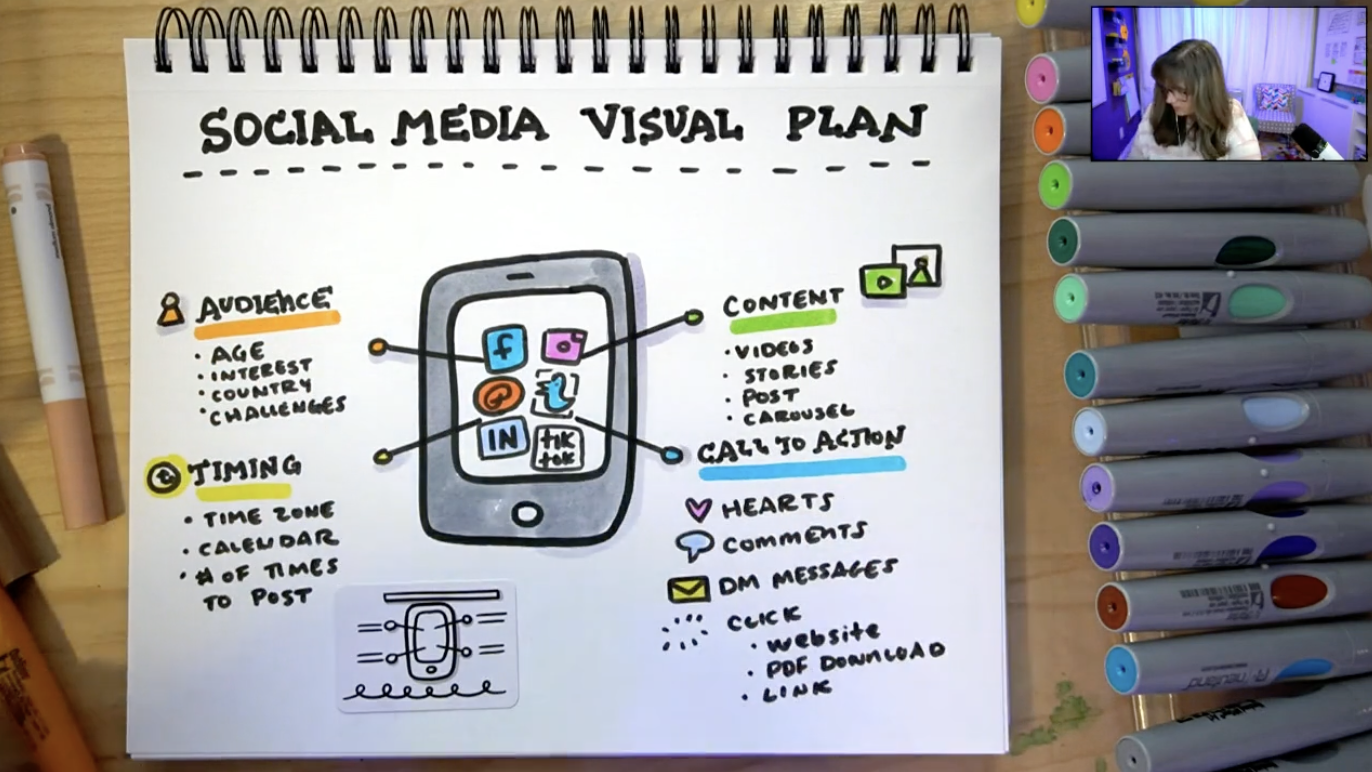 SOCIAL MEDIA VISUAL PLAN
AUDIENCE
• AGE
• INTEREST
• COUNTRY
• CHALLENGES
TIMING
• TIME ZONE
• CALENDAR
• # OF TIMES
TO POST
f
IN
tik
tok
CONTENT
• VIDEOS
• STORIES
• POST
• CAROUSEL
CALL TO ACTION
HEARTS
COMMENTS
DM MESSAGES
CLICK
• WEBSITE
• PDF DOWNLOAD
• LINK
neuland